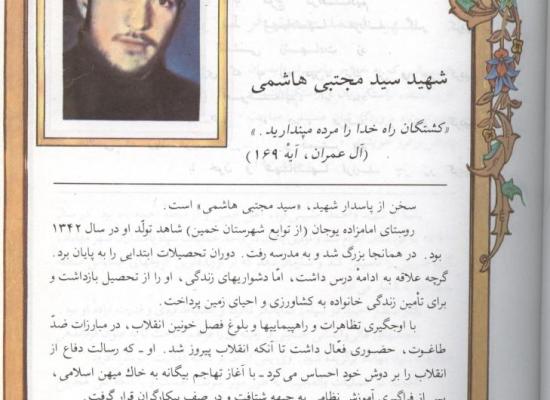 شهید سید مجتبی هاشمی
«کشتگان راه خدا را مرده مپندارید.»
(آل عمران، آیهٔ ۱۶۹)
سخن از پاسدار شهید، «سید مجتبی هاشمی» است.
روستای امامزاده یوجان (از توابع شهرستان خمین) شاهد تولّد او در سال ۱۳۴۲
بود. در همانجا بزرگ شد و به مدرسه رفت. دوران تحصیلات ابتدایی را به پایان برد.
گرچه علاقه به ادامهٔ درس داشت، امّا دشواریهای زندگی، او را از تحصیل بازداشت و
برای تأمین زندگی خانواده به کشاورزی و احیای زمین پرداخت.
با اوجگیری تظاهرات و راهپیماییها و بلوغ فصل خونین انقلاب، در مبارزات ضدّ
طاغوت، حضوری فعّال داشت تا آنکه انقلاب پیروز شد. او ـ که رسالت دفاع از
انقلاب را بر دوش خود احساس می‌کرد ـ با آغاز تهاجم بیگانه به خاك میهن اسلامی،
پس از فراگیری آموزش نظامی به جبهه شتافت و در صف پیکارگران قرار گرفت.